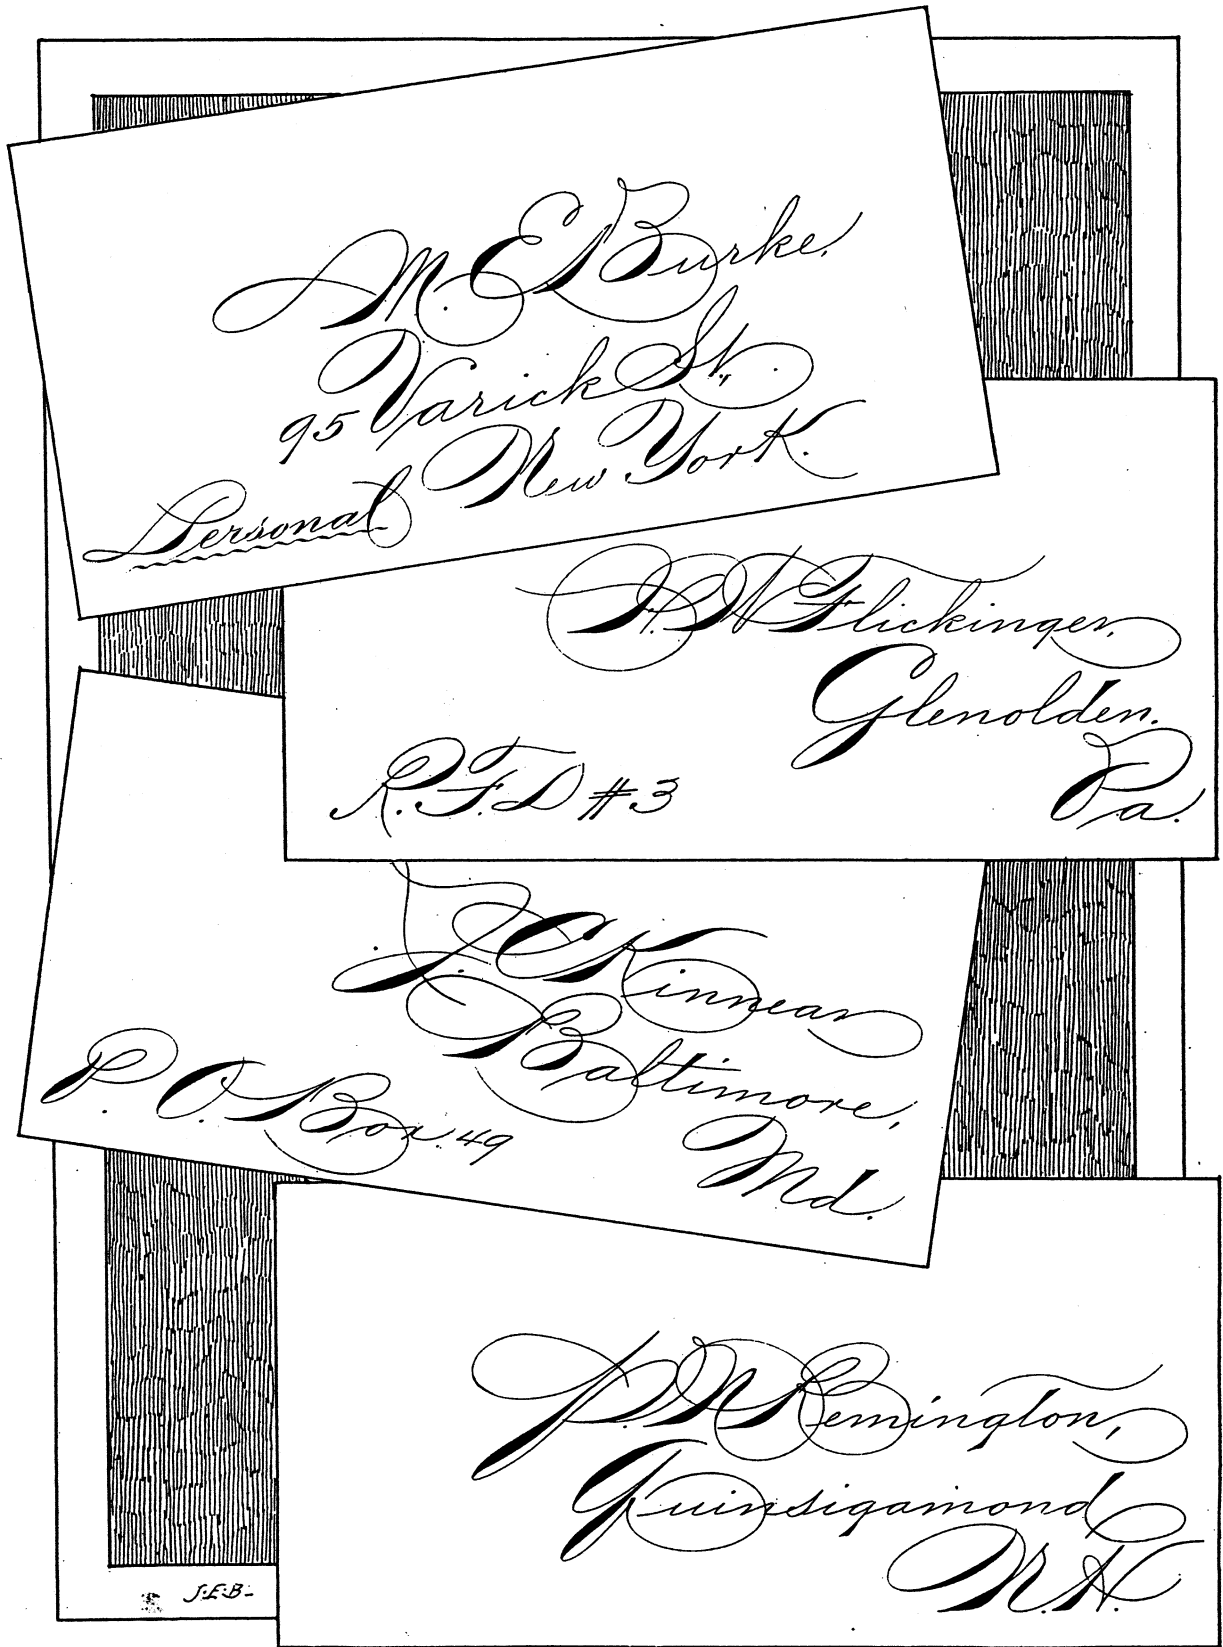 M. E Burke.
95 Varick St.,
New York.
Personal
H. W Flickinger,
Glenolden.
Pa.
R. F. D #3
J. C Kinnear
Baltimore,
Md.
P. O. Box 49
P. N Remington,
Guinsigamond
N. H.
J.E.B.